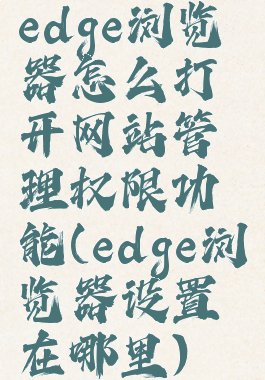 edge浏览
器怎么打
开网站管
理权限功
能(edge浏
览器设置
在哪里)